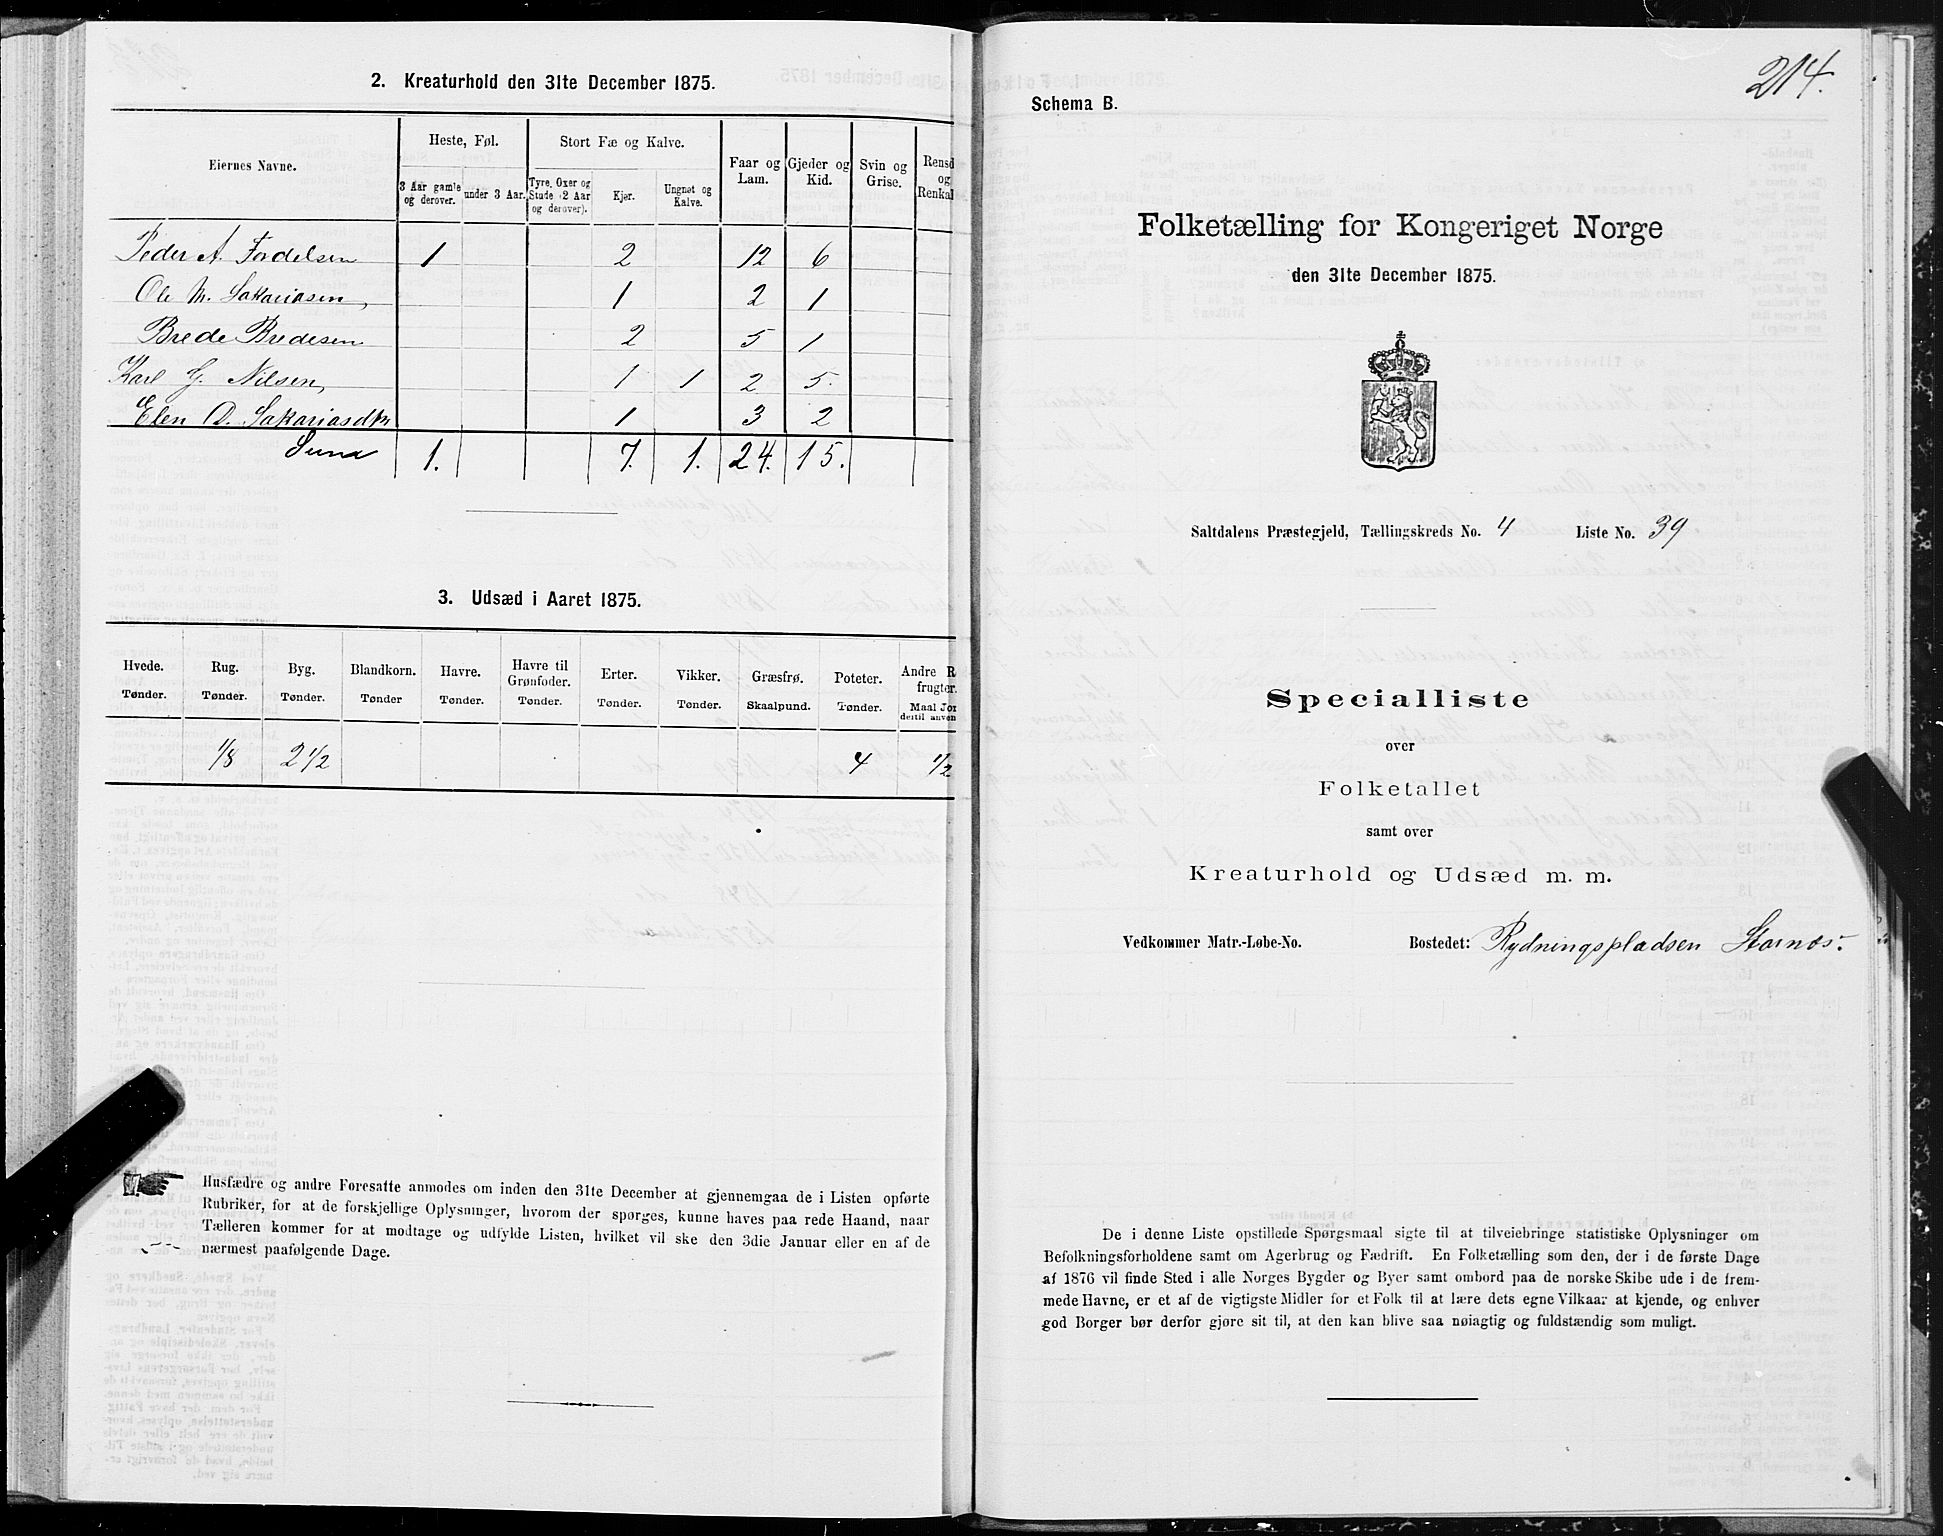 2. Kreaturhold den 31te December 1875.
Eiernes Navne.
Heste, Føl.
Stort Fæ og Kalve.
Faar og Lam.
Gjeder og Kid.
Svin og Grise.
Rensd og Renkal
3 Aar gamle og derover.
under 3 Aar.
Tyre, Oxer og Stude (2 Aar og derover).
Kjør.
Ungnøt og Kalve.
Peder A. 1 2 12 6
Ole M. Sakariasen, 1 2 1
Brede Bredesen 2 5 1
Karl G. Nilsen, 1 1 2 5.
Elen D. Sakariasdtr 1 3 2
1. 7. 1. 24. 15.
3. Udsæd i Aaret 1875.
Hvede. Rug. Byg. Blandkorn. Havre. Havre til Grønfoder. Erter. Vikker. Græsfrø. Poteter. Andre R frugter.
Tønder. Tønder. Tønder. Tønder Tønder. Tønder. Tønder. Tønder. Skaalpund. Tønder. Maal Jor dertil anven
1/8 2 1/2 4 1/2
Husfædre og andre Foresatte anmodes om inden den 31te December at gjennemgaa de i Listen opførte
Rubriker, for at de forskjellige Oplysninger, hvorom der spørges, kunne haves paa rede Haand, naar
Tælleren kommer for at modtage og udfylde Listen, hvilket vil ske den 3die Januar eller en af de
nærmest paafølgende Dage.
214.
Schema B.
Folketælling for Kongeriget Norge
den 31te December 1875.
Saltdalens Præstegjeld, Tællingskreds No. 4 Liste No. 39
Specialliste
over
Folketallet
samt over
Kreaturhold og Udsæd m. m.
Vedkommer Matr.-Løbe-No. Bostedet: Rydningspladsen Stornæs.
De i denne Liste opstillede Spørgsmaal sigte til at tilveiebringe statistiske Oplysninger om
Befolkningsforholdene samt om Agerbrug og Fædrift. En Folketælling som den, der i de første Dage
af 1876 vil finde Sted i alle Norges Bygder og Byer samt ombord paa de norske Skibe ude i de frem-
mede Havne, er et af de vigtigste Midler for et Folk til at lære dets egne Vilkaar at kjende, og enhver
god Borger bør derfor gjøre sit til, at den kan blive saa nøiagtig og fuldstændig som muligt.